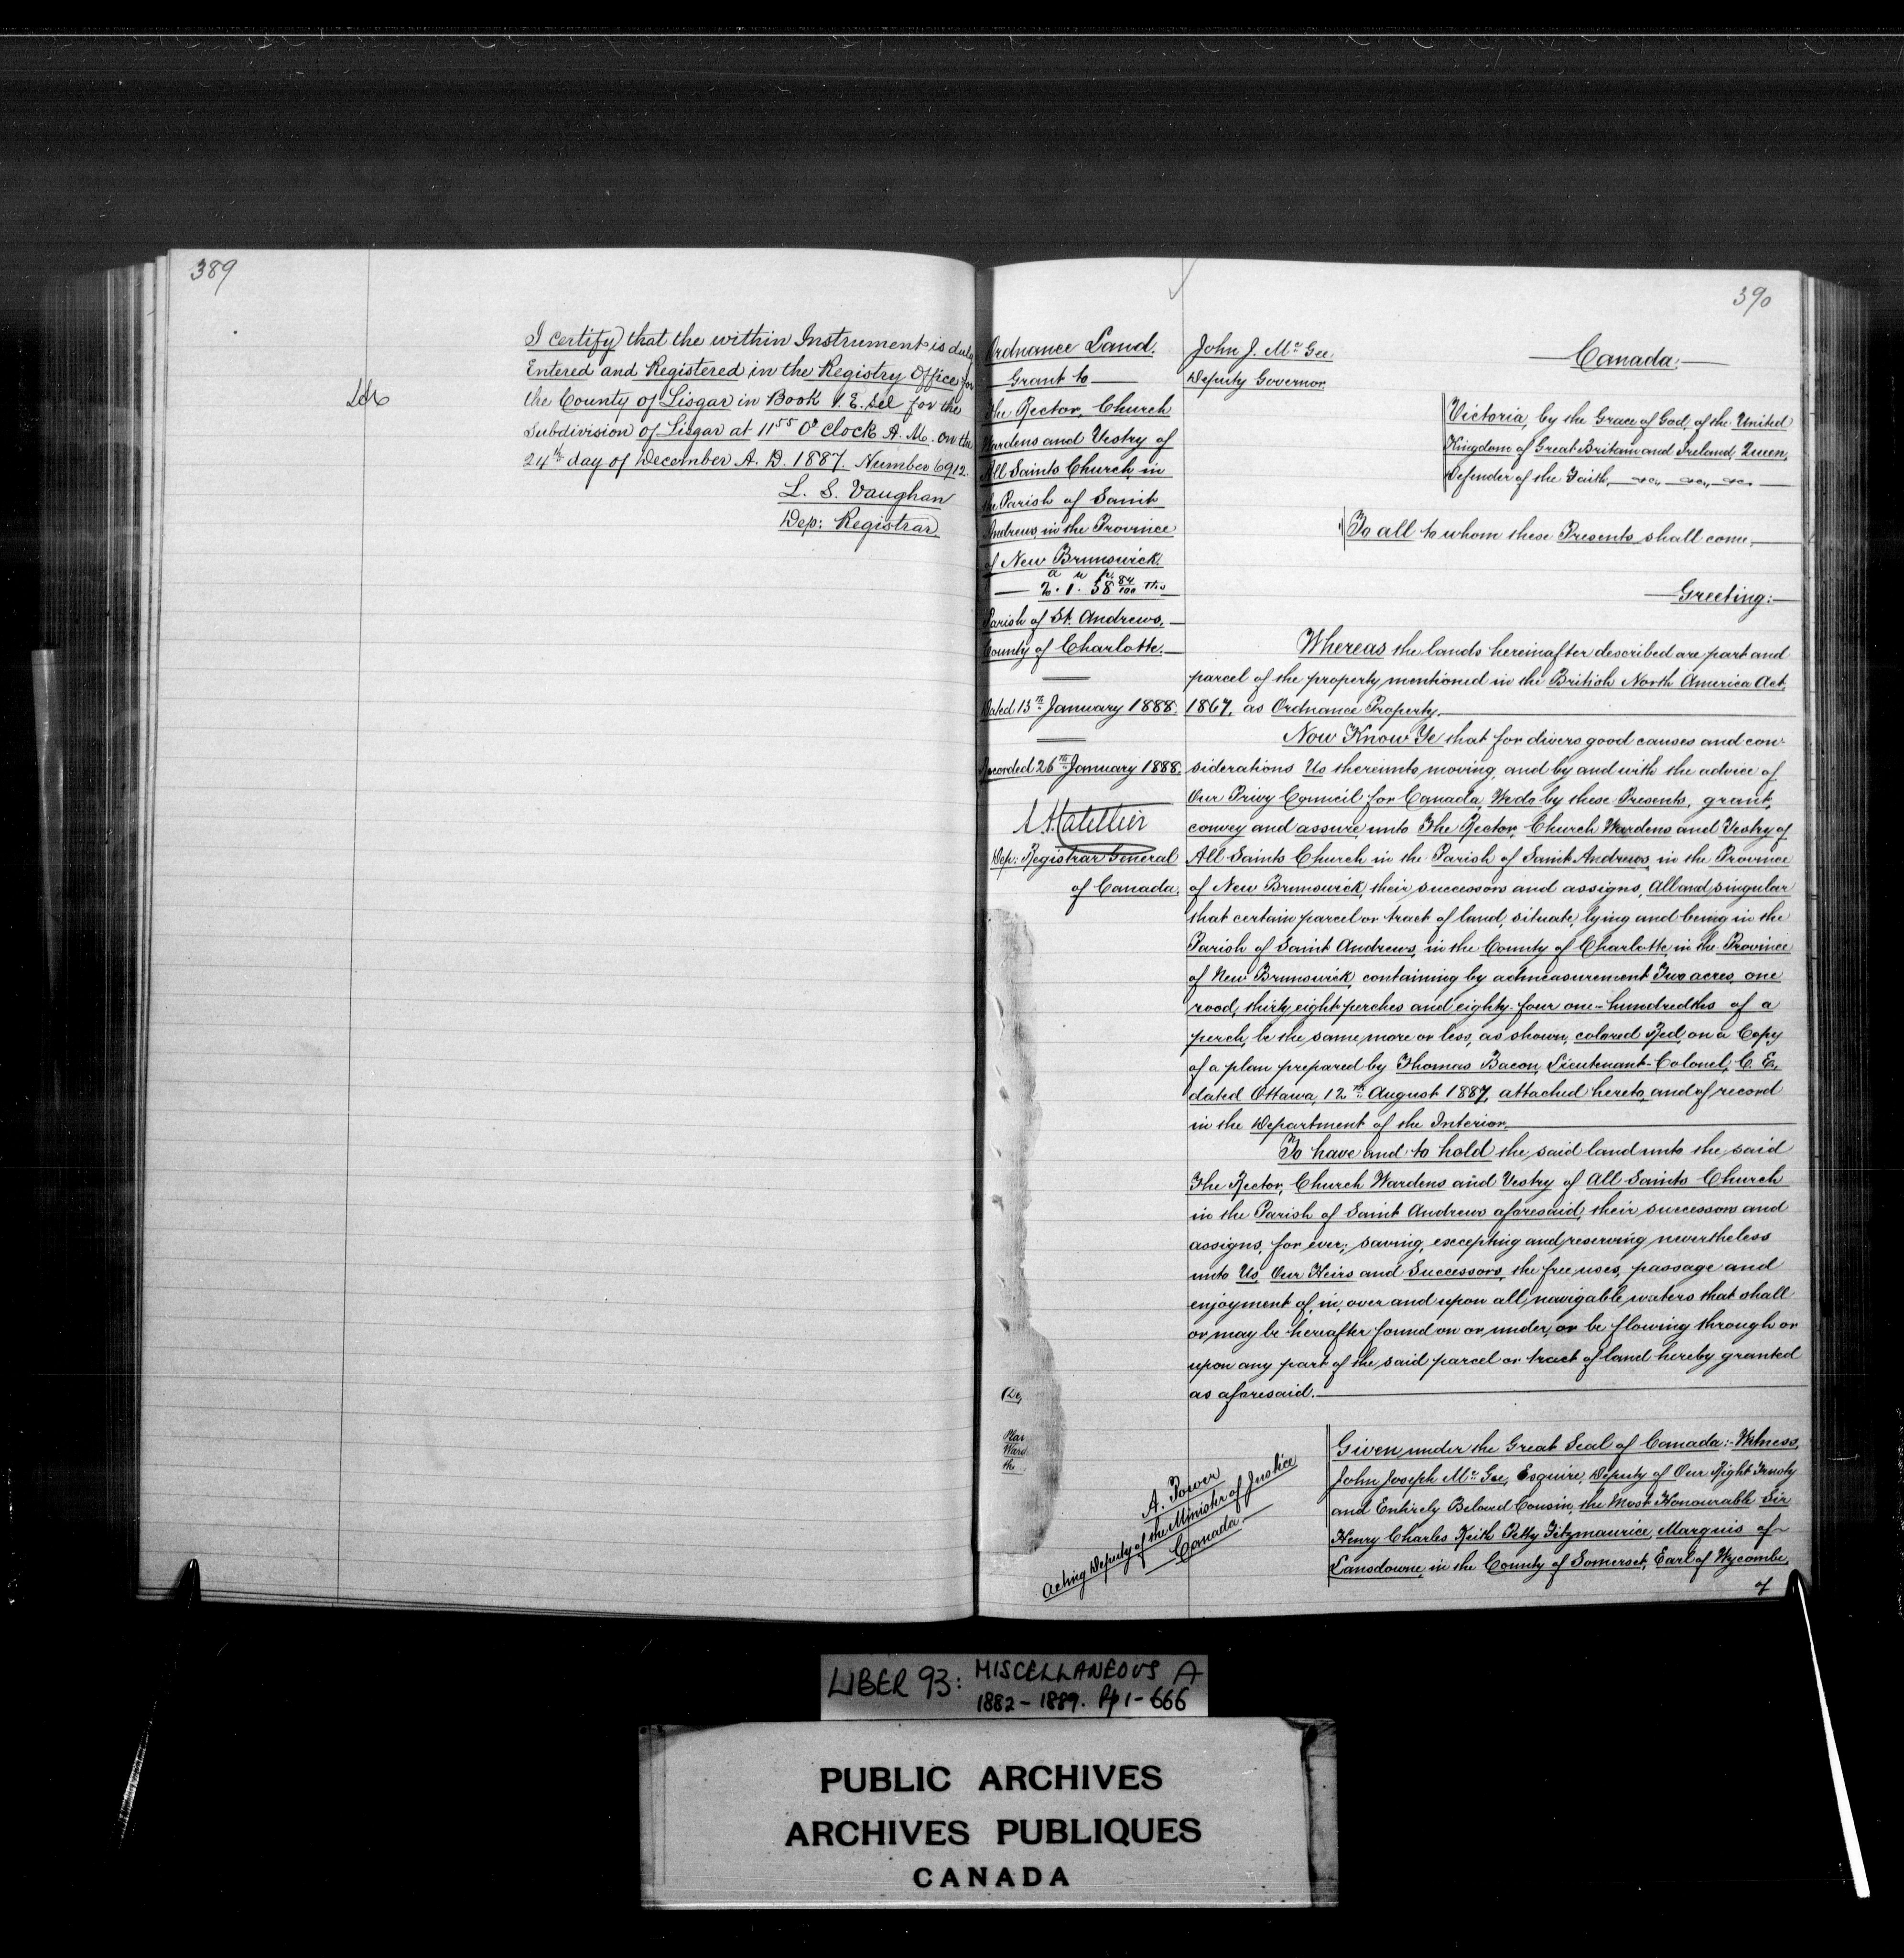 389
I certify that the within Instrument is duly
Entered and Registered in the Registry Office for
the County of Lisgar in Book V. E. Sel for the
Subdivision of Lisgar at 11 55 O'clock A. M. on the
24th day of December A. D. 1887. Number 6912.
L. S. Vaughan
Dep: Registrar
390
Ordnance Land.
Grant to
The Rector, Church
Wardens and Vestry of
All Saints Church, in
the Parish of Saint
Andrews, in the Province
of New Brunswick.
a r p
2. 1. 38 84/100 ths
Parish of St. Andrews,
County of Charlotte.
Dated 13th January 1888.
Recorded 26th January 1888.
Dep: Registrar General
of Canada.
John J. McGee,
Deputy Governor.
Canada:
Victoria, by the Grace of God, of the United
Kingdom of Great Britain and Ireland, Queen,
Defender of the Faith, &c., &c., &c.
To all to whom these Presents shall come,
Greeting:
Whereas the lands hereinafter described are part and
parcel of the property mentioned in the British North America Act,
1867, as Ordnance Property.
Now Know Ye that for divers good causes and con-
siderations Us thereunto moving, and by and with the advice of
Our Privy Council for Canada, We do by these Presents, grant,
convey and assure, unto The Rector, Church Wardens and Vestry of
All Saints Church in the Parish of Saint Andrews, in the Province
of New Brunswick, their successors and assigns, All and singular
that certain parcel or tract of land, situate, lying and being in the
Parish of Saint Andrews, in the County of Charlotte, in the Province
of New Brunswick, containing by admeasurement Two acres, one
rood, thirty eight perches and eighty-four one-hundredths of a
perch, be the same, more or less, as shown, colored Red, on a Copy
of a plan prepared by Thomas Bacon, Lieutenant-Colonel, C. E.,
dated Ottawa, 12th August 1887, attached hereto, and of record
in the Department of the Interior.
To have and to hold the said land unto the said
The Rector, Church Wardens and Vestry of All Saints Church
in the Parish of Saint Andrews aforesaid, their successors and
assigns, for ever; saving, excepting and reserving nevertheless
unto Us, Our Heirs and Successors, the free uses, passage and
enjoyment of, in, over and upon all navigable waters that shall
or may be hereafter found on or under, or be flowing through or
upon any part of the said parcel or tract of land hereby granted
as aforesaid.
Plan
Ward
the
A. Power
Acting Deputy of the Minister of Justice
Canada.
Given under the Great Seal of Canada:- Witness,
John Joseph McGee, Esquire, Deputy of Our Right Trusty
and Entirely Beloved Cousin, the Most Honourable Sir
Henry Charles Keith Petty Fitzmaurice, Marquis of
Lansdowne, in the County of Somerset, Earl of Wycombe,
of
LIBER 93: MISCELLANEOUS A
1882-1889. Pp 1-666
PUBLIC ARCHIVES
ARCHIVES PUBLIQUES
CANADA